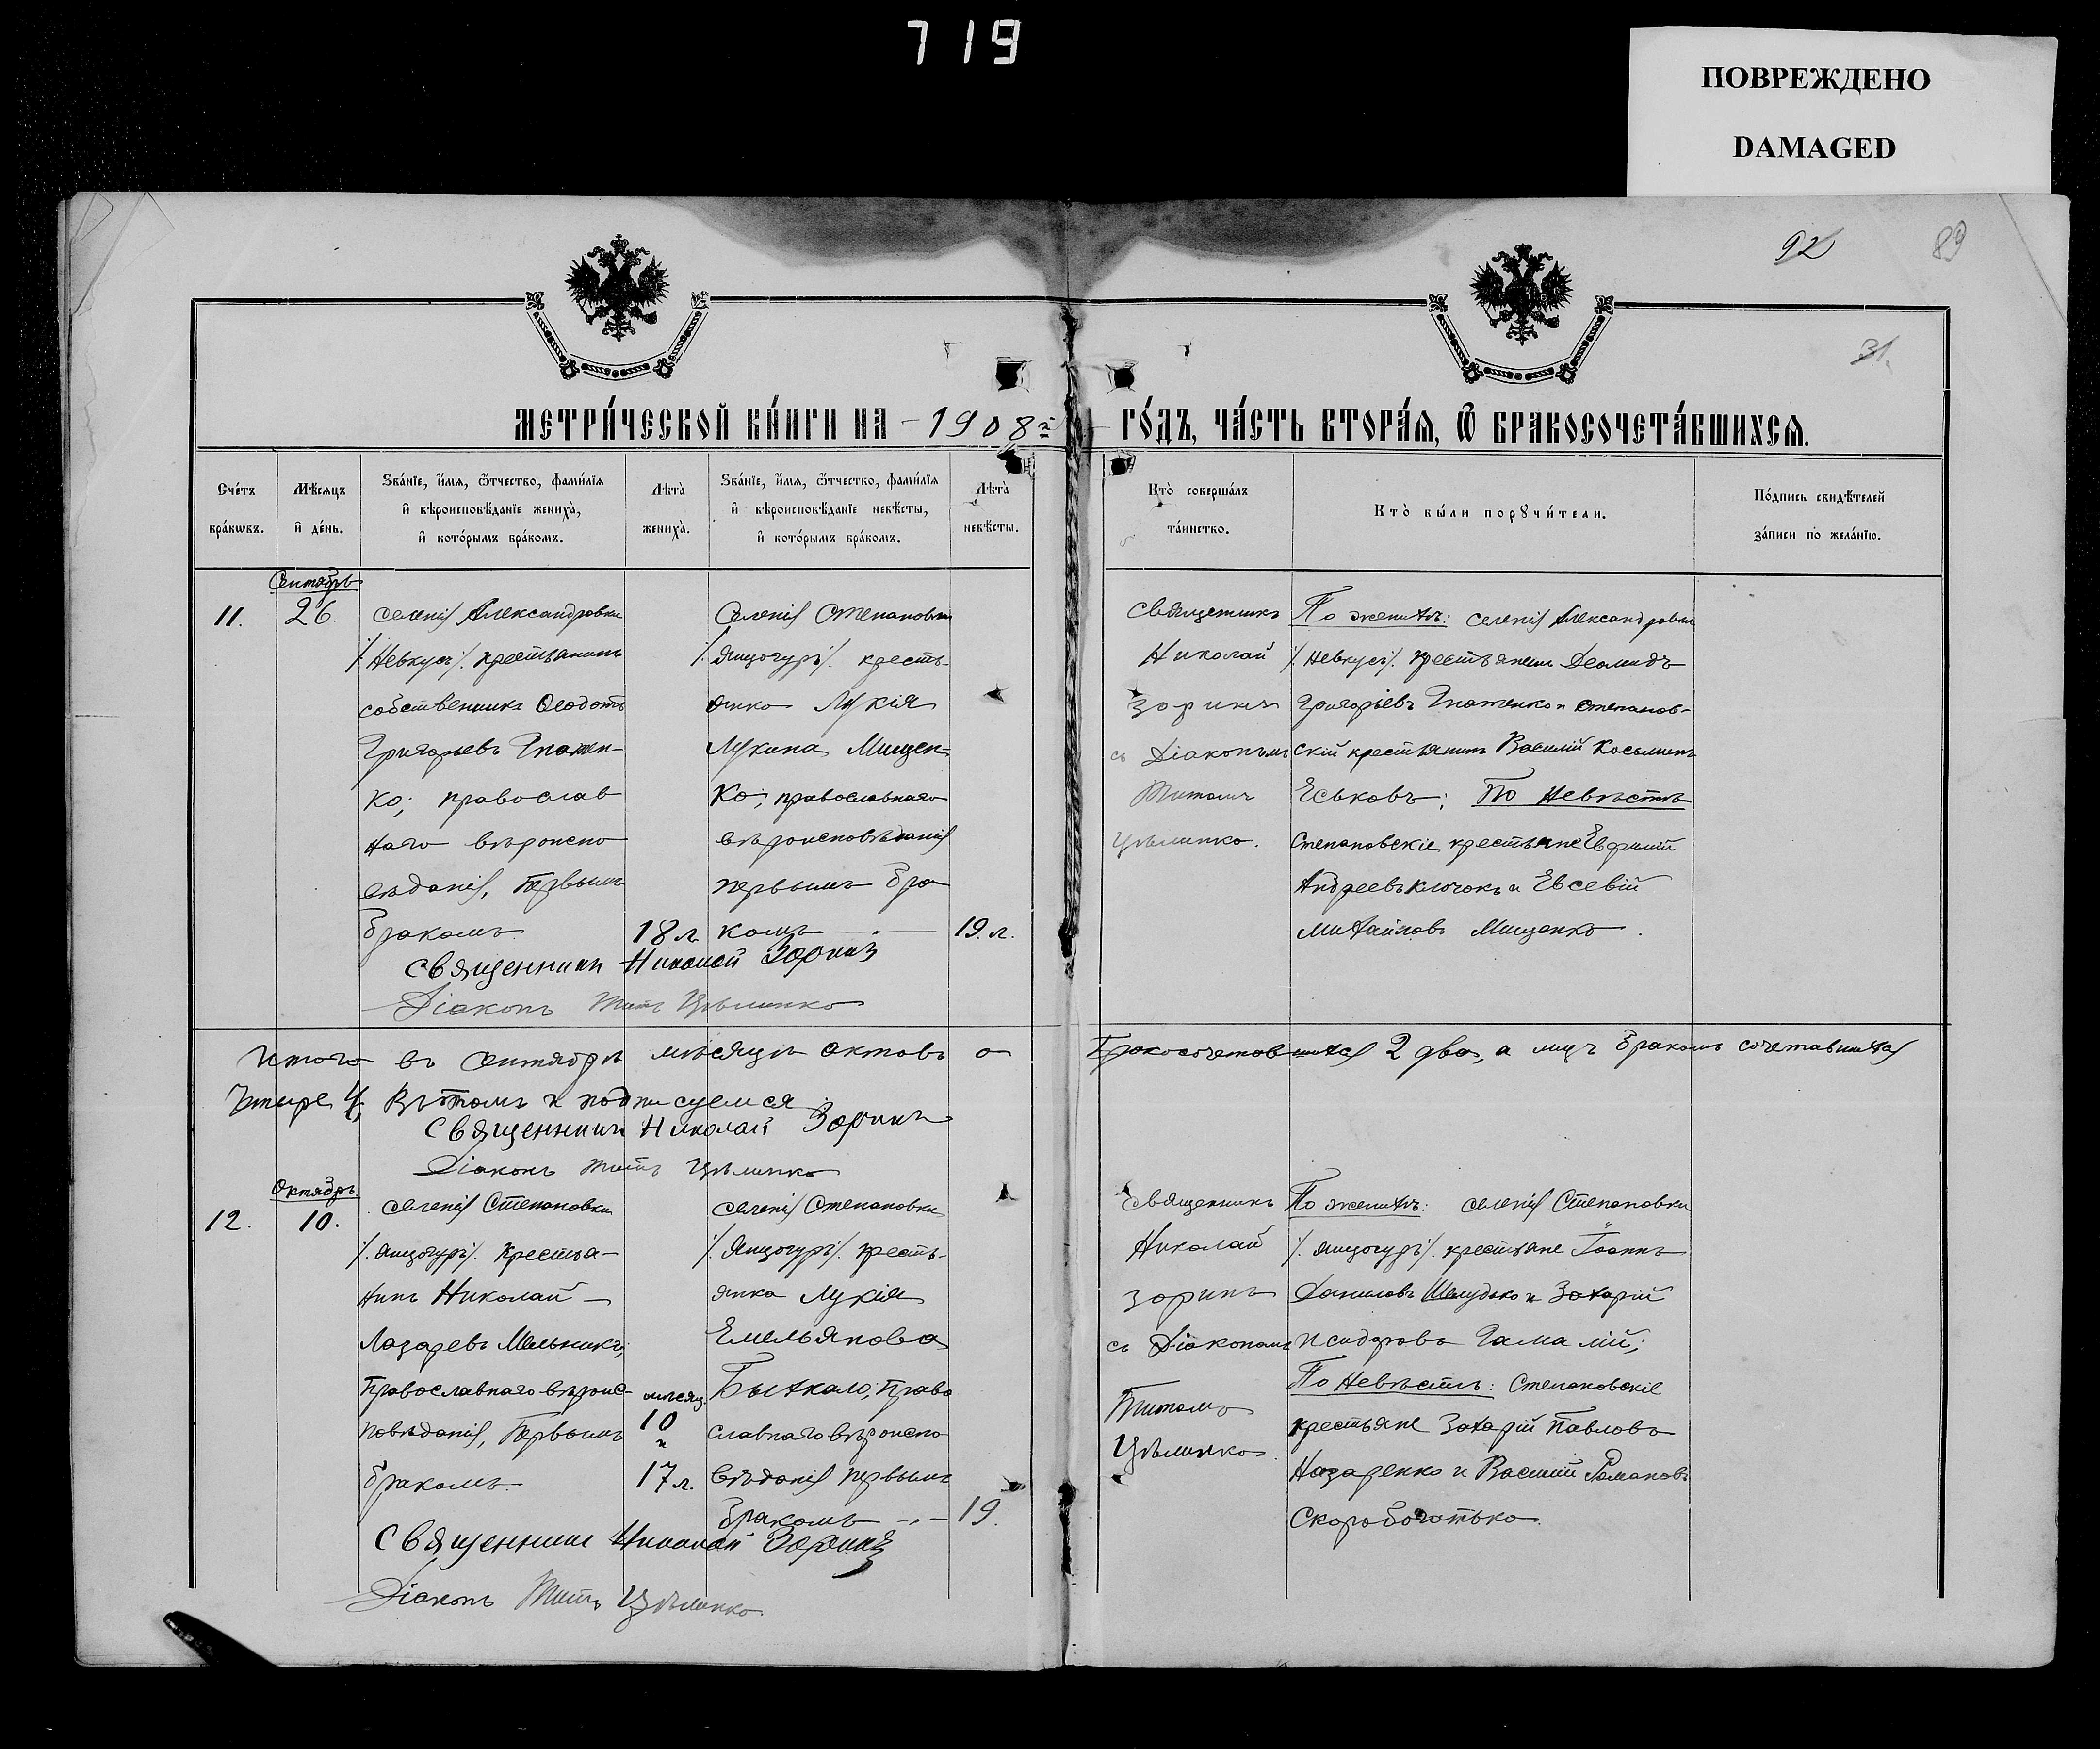 719
ПОВРЕЖДЕНО
DAMAGED
92
89
31.
МЕТРИ́ЧЕСКОЙ КНИ́ГИ НА 1908й ГО́ДЪ, ЧА́СТЬ ВТОРА́Я, Ѽ БРАКОСОЧЕТА́ВШИХСЯ.
Сче́тъ бра́кѡвъ.
Мѣ́сяцъ и҆ де́нь.
Зва́нїе, и҆́мя, ѻ҆́тчество, фами́лїя
и҆ вѣроисповѣ́данїе жениха̀,
и҆ кото́рымъ бра́комъ.
Лѣта̀ жениха̀.
Зва́нїе, и҆́мя, ѻ҆́тчество, фами́лїя
и҆ вѣроисповѣ́данїе невѣ́сты,
и҆ кото́рымъ бра́комъ.
Лѣта̀ невѣ́сты.
Кто̀ соверша́лъ та́инство.
Кто̀ бы́ли порꙋчи́тели.
По́дпись свидѣ́телей за́писи по̀ жела́нїю.
11.
Сентябрь
26.
селенія Александровки
/. Невкусъ/. крестьянинъ
собственникъ Ѳеодотъ
Григорьевъ Гнатен-
ко; православ
наго вѣроиспо
вѣданія, первымъ
бракомъ.
18 л.
Селенія Степановки
/. Янцогуръ/. кресть-
янка Лукія
Лукина Мищен-
ко; православнаго
вѣроисповѣданія
первымъ бра
комъ
19. л.
Священникъ
Николай
Зоринъ
съ Діакономъ
Титомъ
Цѣлинко.
По женихѣ: селенія Александровки
/. Невкусъ/. крестьянинъ Деомидъ
Григорьевъ Гнатенко и степанов-
скій крестьянинъ Василій Косьминъ
Еськовъ; По невѣстѣ
Степановскіе крестьяне Ефимій
Андреевъ Клочокъ и Евсевій
Михайловъ Мищенко.
Священникъ Николай Зоринъ
Діаконъ Титъ Цѣлинко
Итого въ Сентябрѣ мѣсяцѣ актовъ о Бракосочетавшихся 2 два, а лицъ бракомъ сочетавшихся
Четыре 4, Въ томъ и подписуемся
Священникъ Николай Зоринъ
Діаконъ Титъ Цѣлинко
12.
Октябрь.
10.
селенія Степановки
/. Янцогуръ/. Крестья-
нинъ Николай
Лазаревъ Мельникъ;
Православнаго вѣроис-
повѣданія, Первымъ
бракомъ.
мѣсяц.
10
и
17 л.
селенія Степановки
/. Янцогуръ/. кресть-
янка Лукія
Емельянова
Быхкало; право
славнаго вѣроиспо
вѣданія первымъ
бракомъ
19.
Священникъ
Николай
Зоринъ
съ Діакономъ
Титомъ
Цѣлинко.
По женихѣ: селенія Степановки
/. Янцогуръ/. крестьяне Іоаннъ
Даниловъ Шелудько и Захарій
Исидоровъ Гамалій;
По невѣстѣ: Степановскіе
крестьяне Захарій Павловъ
Назаренко и Василій Романовъ
Скоробогатько.
Священникъ Николай Зоринъ
Діаконъ Титъ Цѣлинко.